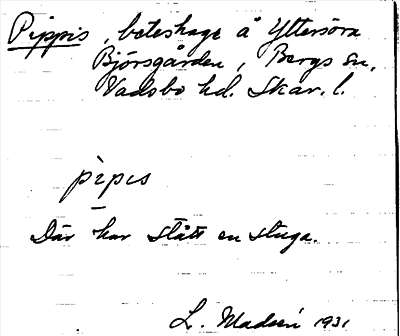 Pippis, beteshage å Yttersöra
Björsgården, Bergs sn,
Vadsbo hd. Skar. l.
pìpis
Där har stått en stuga.
L. Madsén 1931